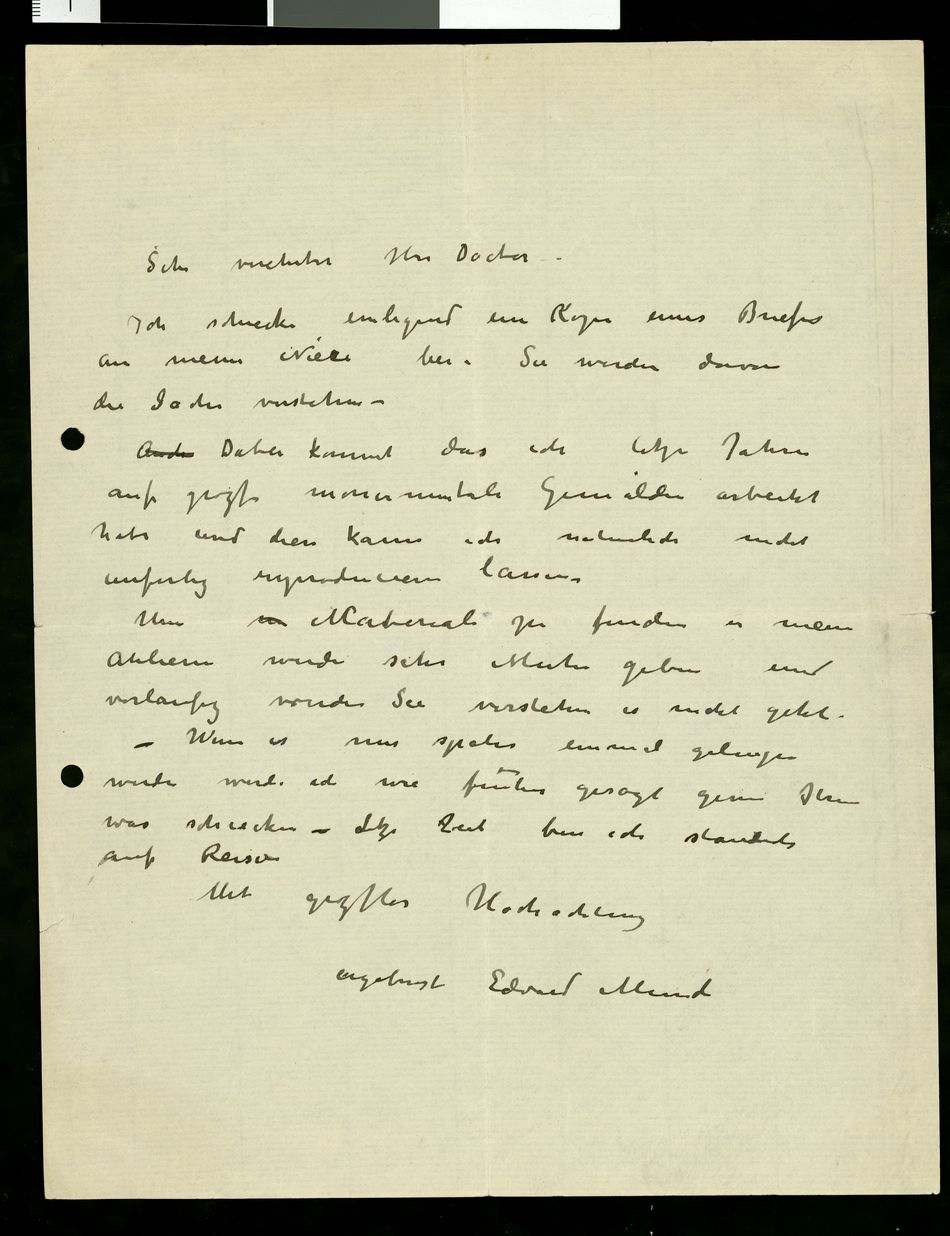 Sehr verehrter Herr Doctor –
Ich schicke einligend ein Kopi eines Briefes
an meine Niece bei. Sie werden davon
die Sache verstehen –
Auch Dabei kommt das ich letzte Jahre
auf grosse monumentale Gemälden arbeitet
habe und diese kann ich naturlich nicht
unfertig reproducieren lassen.
Um in Materiale zu finden in mein
Atelieren werde sehr Muhe geben und
vorlaufig werden Sie verstehen es nicht geht.
– Wenn es mir später einmal gelingen
werde werde ich wie früher gesagt gern Ihnen
was schicken – Letze Zeit bin ich standich
auf Reisen
Mit grösster Hochachtung
ergebenst Edvard Munch